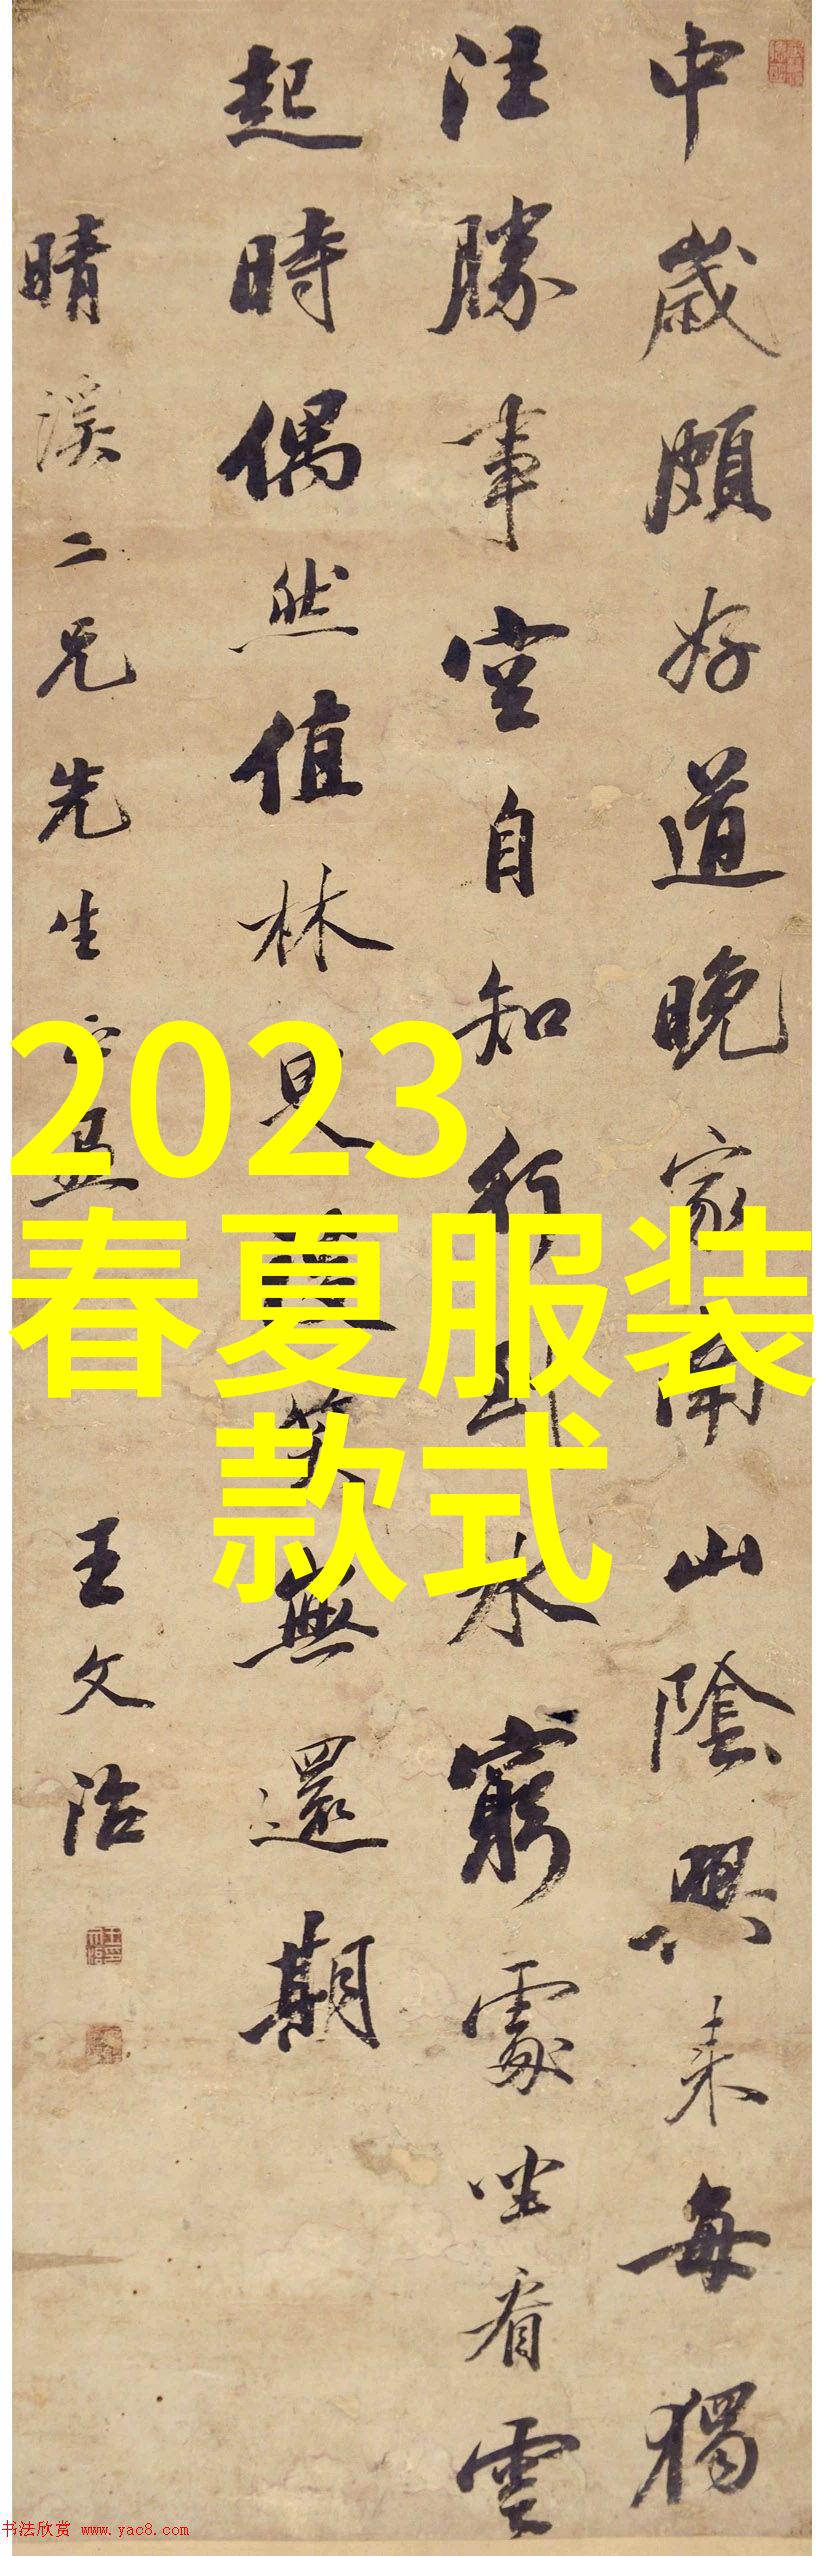 中歲頗好道晚家南山陰興来每獨
往勝事空自知行到水窮處坐看雲
起時偶然值林叟談笑無還期
晴溪二兄先生
王文治
2023
春夏服装
款式
书法欣赏 www.yac8.com